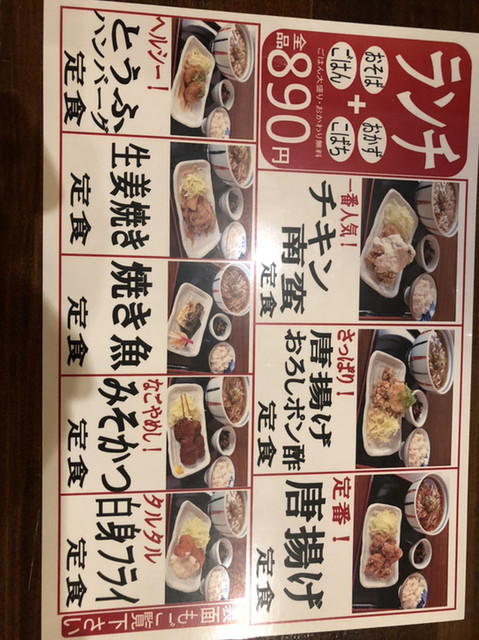 ランチ
おそば
ごはん
+
おかず
こばち
ごはん大盛り・おかわり無料
全品890円
一番人気!
チキン
南蛮
定食
さっぱり!
唐揚げ
おろしポン酢
定食
定番!
唐揚げ
定食
ヘルシー!
とうふ
ハンバーグ
定食
生姜焼き
定食
焼き魚
定食
なごやめし!
みそかつ
定食
タルタル
白身フライ
定食
裏面もご覧下さい